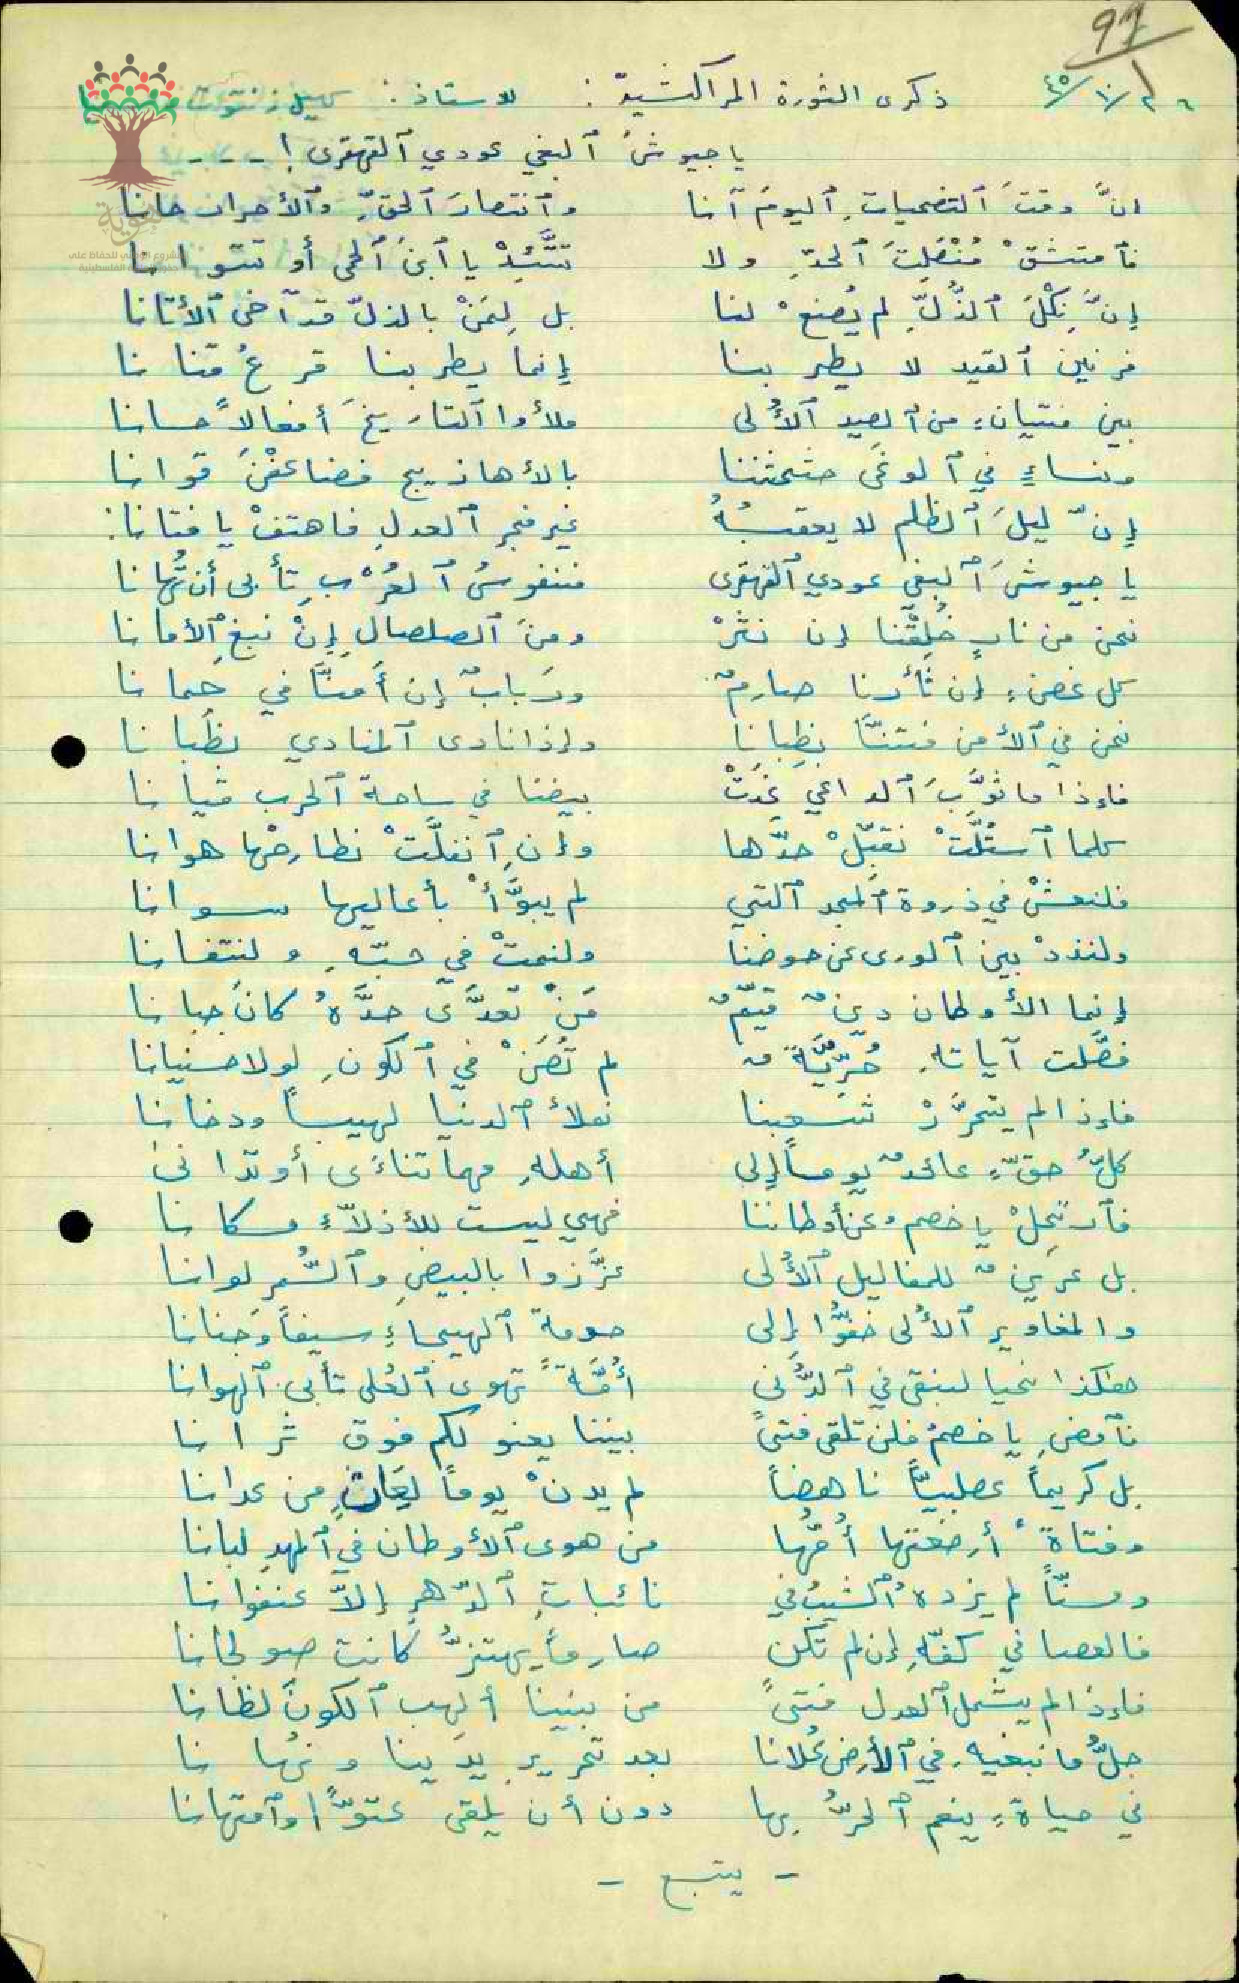 97
١
٢٦/١٠/٤٥ ذكرى الثورة المراكشية : للاستاذ :
يا جيوشَ ٱلبغي عودي ٱلقهقرى ! ---
انَّ وقتَ ٱلتضحياتِ ٱليومَ آنا وٱنتصارَ ٱلحقِّ وٱلأحرار حانا
فٱمتشقْ مُنْصَلِتَ ٱلحدِّ ولا تتَّئِدْ يا ٱبنَ ٱلحمى أو تتوانا
إنَّ نِكْلَ ٱلذُّلِّ لم يُصنعْ لنا بل لِمَنْ بالذلّ قد آخى ٱلأتانا
فرنين ٱلقيد لا يطربنا إنما يطربنا قرعُ قنانا
بين فتيانٍ من ٱلصيد ٱلأُلى ملأوا ٱلتاريخَ أفعالاً حسانا
ونساءٍ في ٱلوغى حثحثننا بالأهازيج فضاعفْنَ قوانا
إنّ ليلَ ٱلظلم لا يعقبُهُ غير فجر ٱلعدلِ فاهتفْ يا فتانا:
يا جيوشَ ٱلبغي عودي ٱلقهقرى فنفوسُ ٱلعُرْبِ تأبى أن تُهانا
نحن من نارٍ خُلِقْنا إن نثرْ ومنَ ٱلصلصالِ إنْ نبغِ ٱلأمانا
كل غصنٍ إن ثأرنا صارمٌ وربابٌ إن أَمِنَّا في حَمانا
نحن في ٱلأمن فُتنَّا بظِبانا وإذا نادى ٱلمنادي بظُبانا
فإذا ما ثوَّبَ ٱلداعي غدَتْ بيضنا في ساحة ٱلحرب قيانا
كلما ٱستُلَّتْ نقبّلْ حدّها وإنِ ٱنفلَّتْ نطارحْها هوانا
فلنعشْ في ذروة ٱلمجد ٱلتي لم يبوَّأْ بأعاليها سوانا
ولنذدْ بين ٱلورى عن حوضنا ولنمتْ في حبّهِ ولنتفانا
إنما الأوطان دينٌ قيّمٌ مَنْ تعدَّى حدَّهُ كانَ جبانا
فصّلت آياتهِ حُرّيَّةٌ لم تُصَنْ في ٱلكونِ لولا حسنيانا
فإذا لم يتحرَّرْ شعبنا نملأ ٱلدنيا لهيباً ودخانا
كلّ حقٍّ عائدٌ يوماً إلى أهلهِ مهما تناءَى أو تدانى
فٱرتحِلْ يا خصم عن أوطاننا فهي ليست للأذلاّء مكانا
بل عرينٌ للمغاليل ٱلأُلى عزَّزوا بالبيضِ وٱلسُّمر لوانا
والمغاوير ٱلأُلى خفُّوا إلى حومة ٱلهيجاءِ سيفاً وَجنانا
هكذا نحيا لنبقى في ٱلدُّنى أُمَّةً تهوى ٱلعُلى تأبى ٱلهوانا
فٱمضِ يا خصمُ فلن تلقى فتىً بيننا يعنو لكم فوق ثرانا
بل كريماً عصلبيّاً ناهضاً لم يدنْ يوماً لِعَاتٍ من عدانا
وفتاةً أرضعتها أُمُّها من هوى ٱلأوطان في ٱلمهدِ لبانا
ومسنّاً لم يزدهُ ٱلشيبُ في نائباتِ ٱلدّهرِ إلاَّ عنفوانا
فالعصا في كفّهِ إن لم تكن صارماً يهتزُّ كانت صولجانا
فإذا لم يشمل ٱلعدل فتىً من بنينا ألهب ٱلكونَ لظانا
جلُّ ما نبغيهِ في ٱلأرض عُلانا بعد تحرير يدَينا ونُهانا
في حياةٍ ينعم ٱلحرُّ بها دون أن يلقى عتوًّا وٱمتهانا
- يتبع -